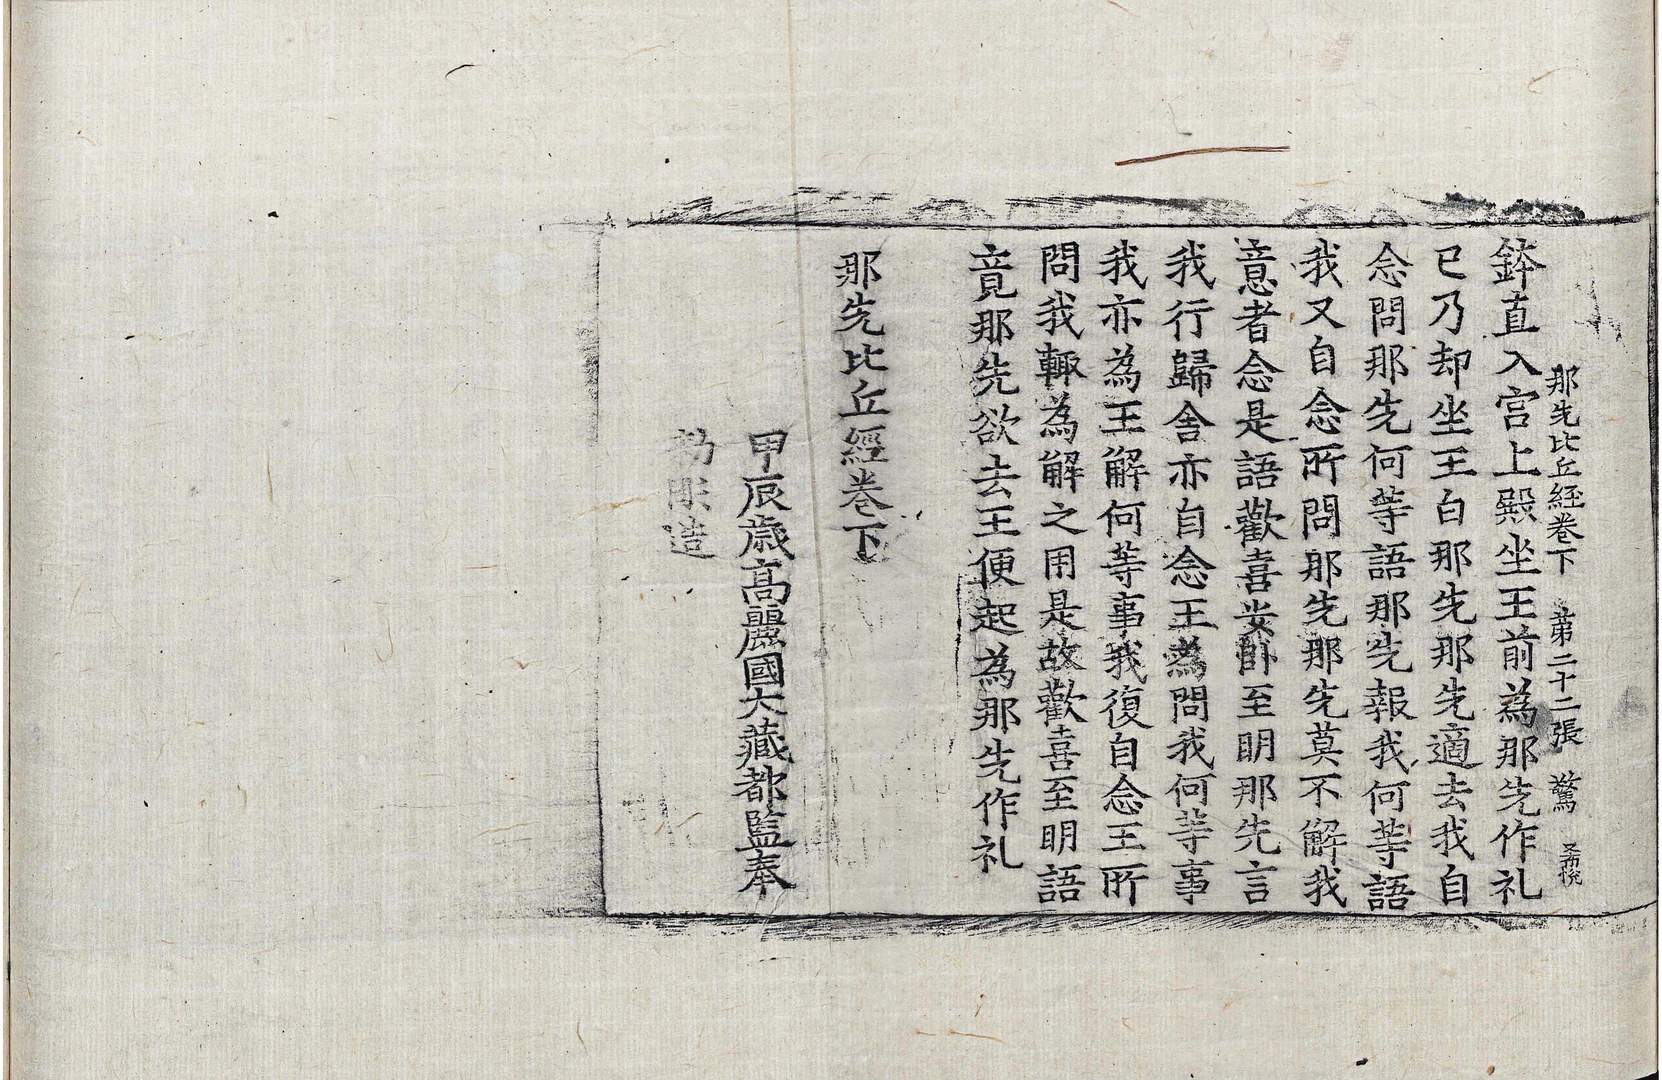 那先比丘経卷下　第二十二張　驚
鉢直入宮上殿坐王前為那先作礼
已乃却坐王白那先那先適去我自
念問那先何等語那先報我何等語
我又自念所問那先那先莫不解我
意者念是語歡喜安卧至明那先言
我行歸舍亦自念王為問我何等事
我亦為王解何等事我復自念王所
問我輙為解之用是故歡喜至明語
竟那先欲去王便起為那先作礼
那先比丘經卷下
甲辰歳高麗國大藏都監奉
勑彫造